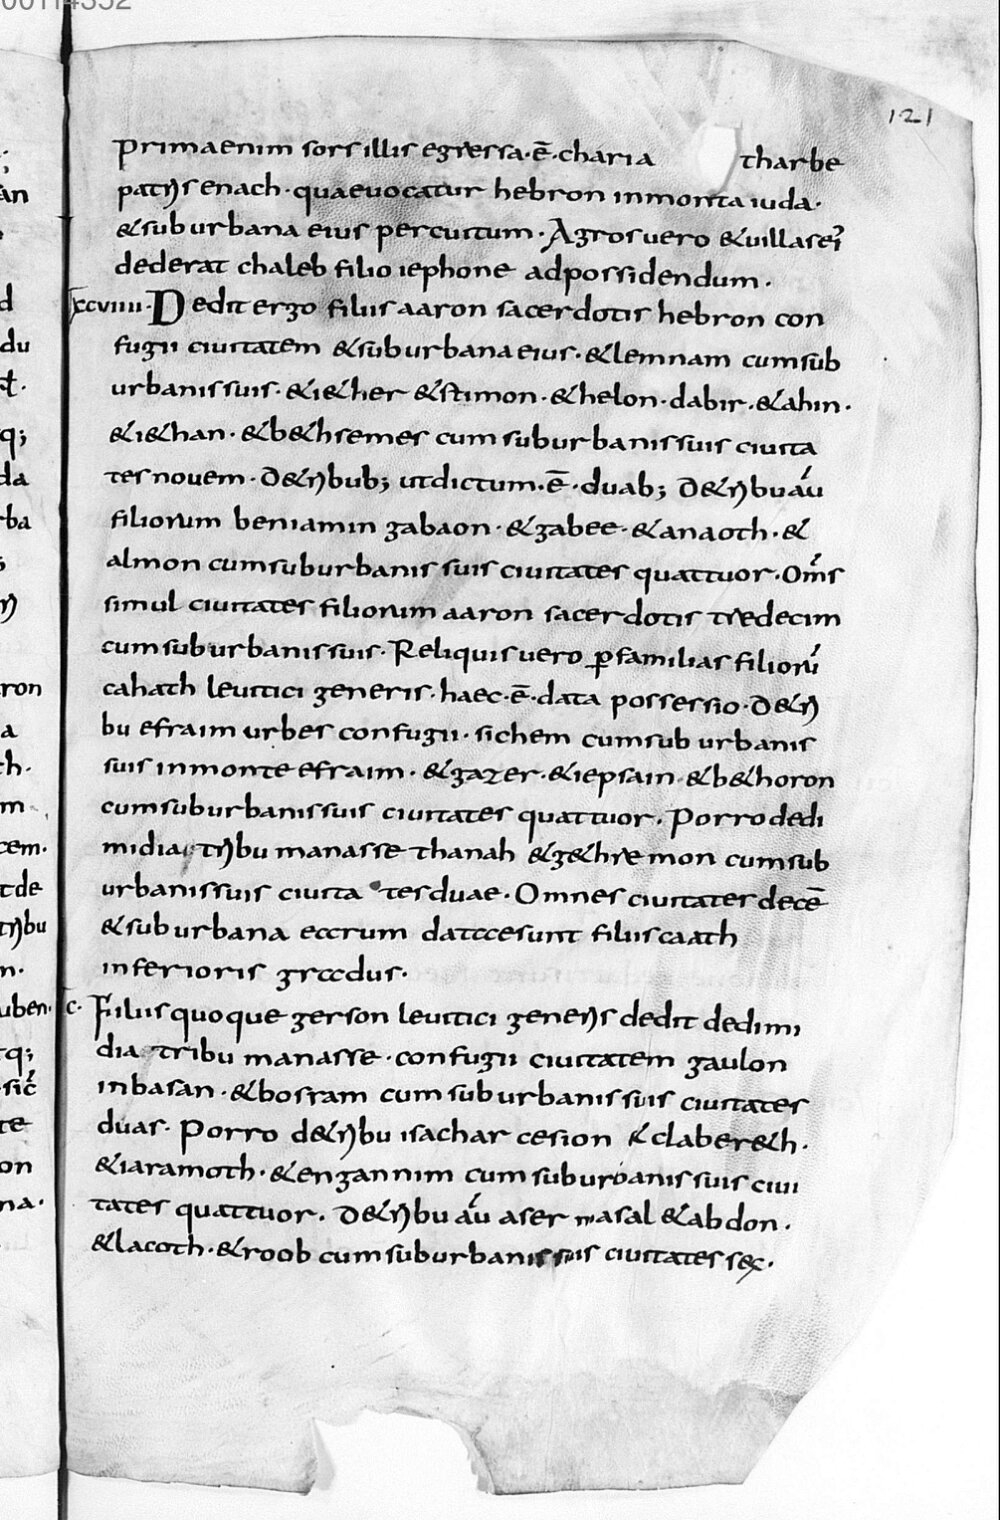 121
prima enim sors illis egressa · ē · charia tharbe
patris enach · quae vocatur hebron in monta iuda ·
& suburbana eius per cuitum · Agros vero & villas ei᷒
dederat chaleb filio iephone ad possidendum ·
xcviiii · Dedit ergo filiis aaron sacerdotis hebron con
fugii ciuitatem & suburbana eius · & lemnam cum sub
urbanis suis · & i&her & stimon · & helon · dabir · & ahin ·
& i&han · & b&hsemes cum suburbanis suis ciuita
tes nouem · de tribub; ut dictum · ē · duab; de tribu aū
filiorum beniamin gabaon · & gabee · & anaoth · &
almon cum suburbanis suis ciuitates quattuor · Om̄s
simul ciuitates filiorum aaron sacerdotis tredecim
cum suburbanis suis · Reliquis uero ꝑ familias filiorū
cahath leuitici generis · haec · ē · data possessio · de tri
bu efraim urbes confugii · sichem cum suburbanis
suis in monte efraim · & gazer · & iepsain · & b&horon
cum suburbanis suis ciuitates quattuor · Porro de di
midia tribu manasse thanah & g&hremon cum sub
urbanis suis ciuita tes duae · Omnes ciuitates decē
& suburbana eorum datae sunt filiis caath
inferioris gradus ·
c · Filiis quoque gerson leuitici generis dedit de dimi
dia tribu manasse · confugii ciuitatem gaulon
in basan · & bosram cum suburbanis suis ciuitates
duas · Porro de tribu isachar cesion & claber&h ·
& iaramoth · & engannim cum suburbanis suis ciui
tates quattuor · de tribu aū aser masal & abdon ·
& lacoth · & roob cum suburbanis suis ciuitates sex ·